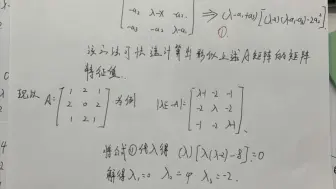 -a₂ λ-x -a₂ ⇒ (λ-a₁+a₃)[(λ-x)(λ-a₁-a₃)-2a₂²]
-a₃ -a₂ λ-a₁ ①
该方法可快速计算出形似上述A矩阵的矩阵
特征值.
现以 A=[1 2 1; 2 0 2; 1 2 1] 为例 |λE-A|=[λ-1 -2 -1; -2 λ -2; -1 -2 λ-1]
将公式①代入得 (λ)[λ(λ-2)-8]=0
解得λ₁=0 λ₂=4 λ₃=-2.